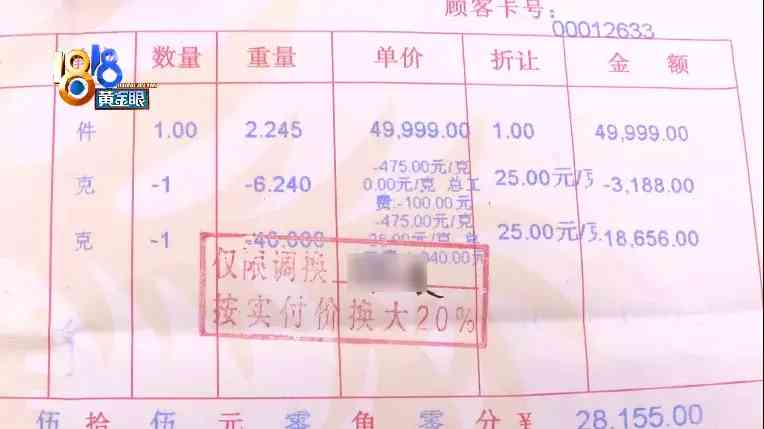 顾客卡号:
00012633
1818
黄金眼
数量 重量 单价 折让 金额
件 1.00 2.245 49,999.00 1.00 49,999.00
-475.00元/克
克 -1 -6.240 0.00元/克 总工 25.00元/ -3,188.00
费:-100.00元
-475.00元/克
克 -1 -40.000 25.00元/ -18,656.00
仅限调换
按实付价换大20%
伍拾 伍元 零角 零分 ¥ 28,155.00